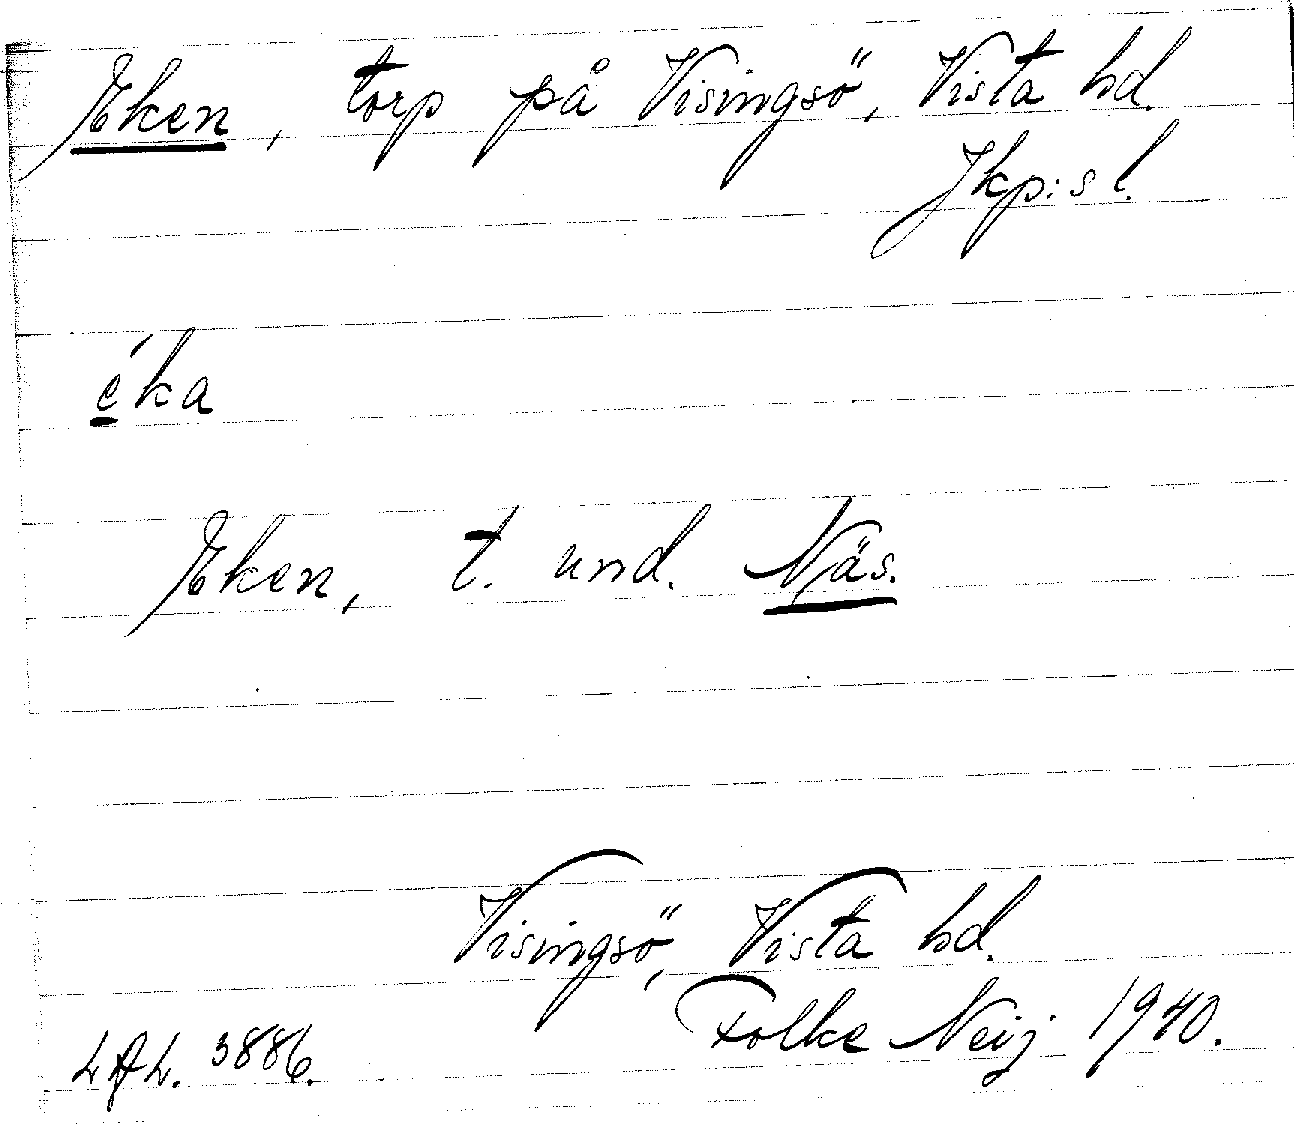 Eken, torp på Visingsö, Vista hd.
Jkp:s l.
éka
Eken, t. und. Näs.
Visingsö, Vista hd.
Folke Neij 1940.
LAL. 3886.